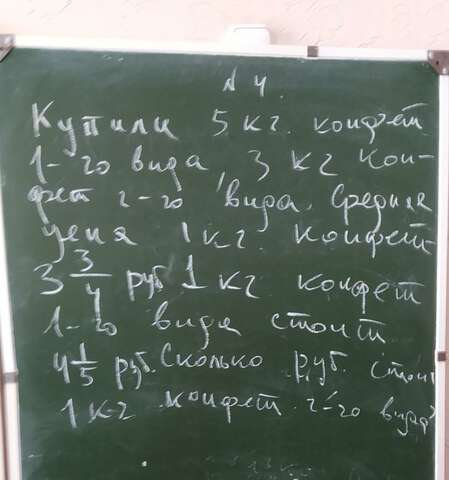 № 4.
Купили 5 кг. конфет
1-го вида, 3 кг кон-
фет 2-го вида. Средняя
цена 1 кг. конфет
3 3/4 руб 1 кг конфет
1-го вида стоит
4 1/5 руб. Сколько руб. стоит
1 кг конфет 2-го вида?